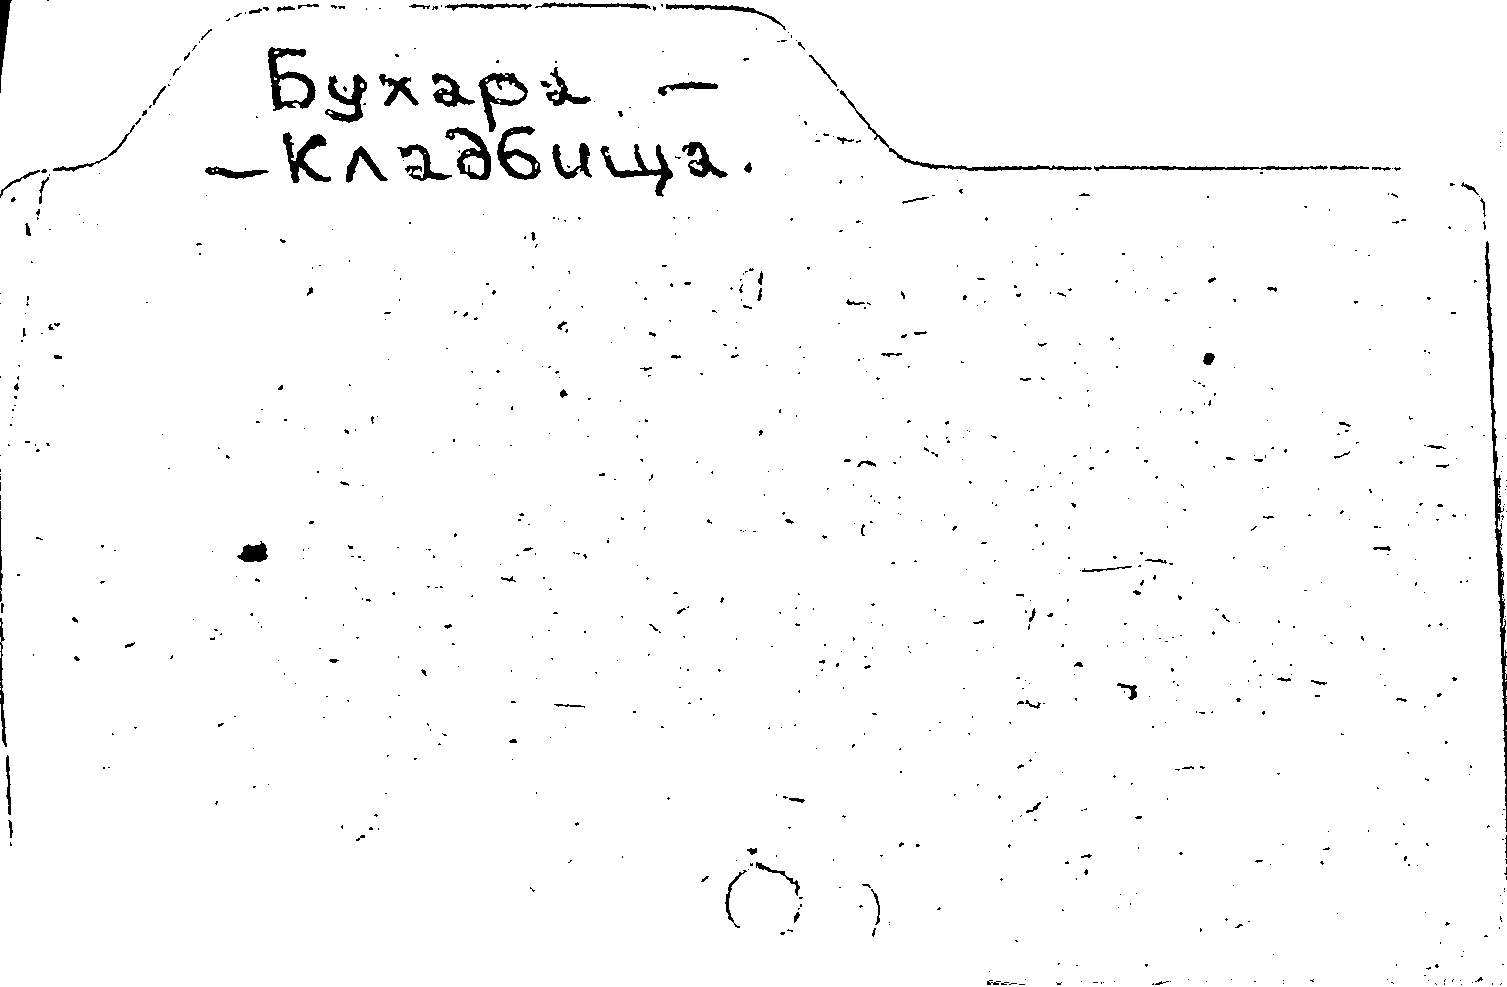 Бухара –
– Кладбища.